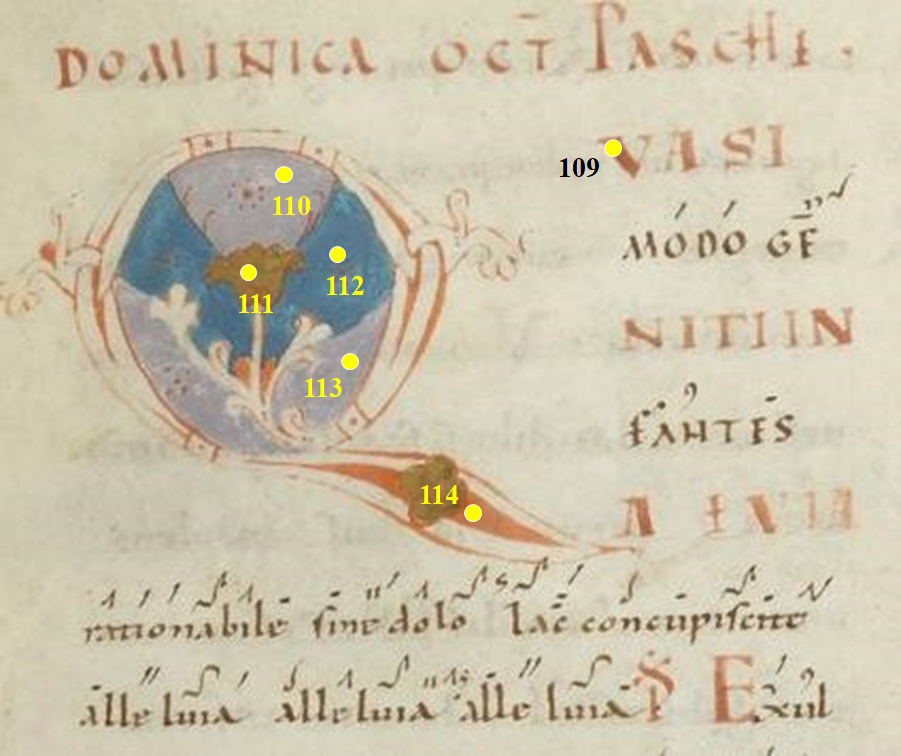 DOMINICA OCT̄ PASCHE.
QVASI
109
110
MODO GE̅
111
112
NITI IN
113
FANTES
114
A EVIA
rationabile sine dolo lac̄ concupiscite
alleluia alleluia alleluia P̄S Exul